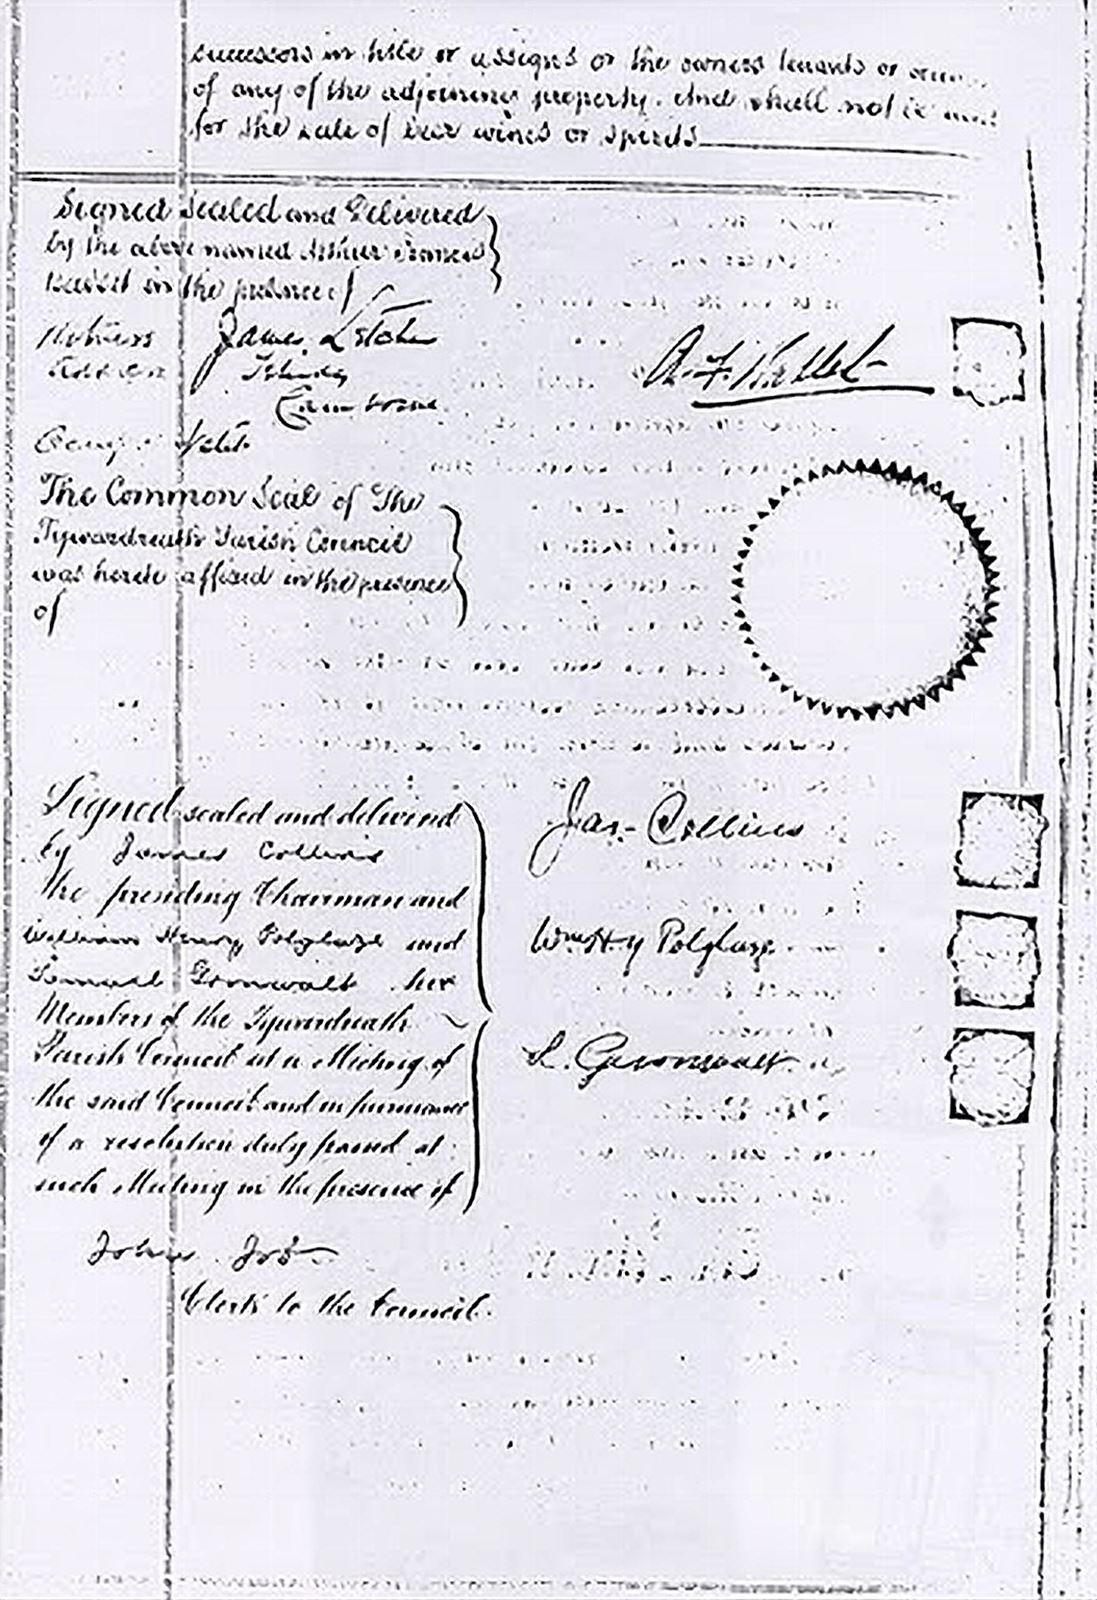 successors in title or assigns or the owners tenants or
of any of the adjoining property. And shall not be used
for the sale of beer wines or spirits
Signed Sealed and Delivered
by the above named Arthur Francis
Basset in the presence of
Witness James
Address
Camborne
A. F. Basset
The Common Seal of The
Tywardreath Parish Council
was hereto affixed in the presence
of
Signed sealed and delivered
by James Collins
the presiding Chairman and
William Henry Polglaze and
Samuel Gronwalt two
Members of the Tywardreath
Parish Council at a Meeting of
the said Council and in pursuance
of a resolution duly passed at
such Meeting in the presence of
Jas. Collins
Wm Hy Polglaze
S. Gronwalt
John
Clerk to the Council.